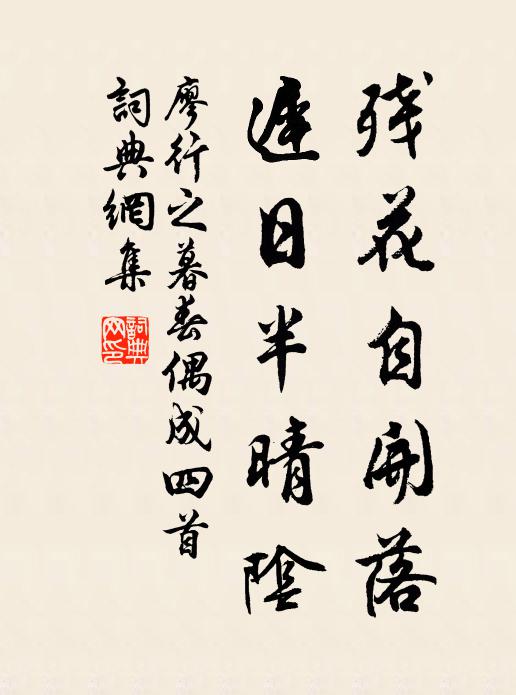 残花自開落
遲日半晴陰
廖行之暮春偶成四首
詞典網集
詞典網印